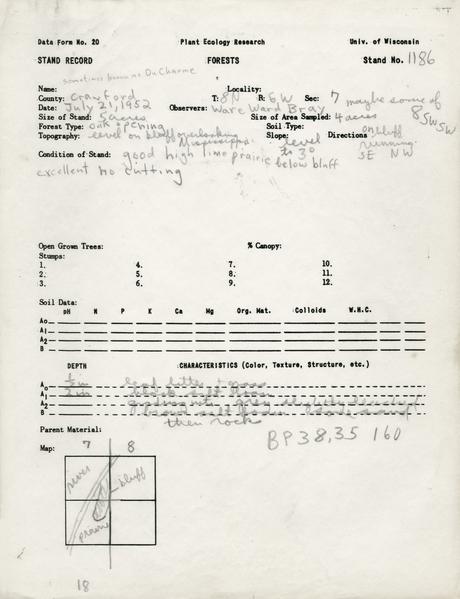 Data Form No. 20 Plant Ecology Research Univ. of Wisconsin
STAND RECORD FORESTS Stand No. 1186
sometimes known as DuCharme
Name: Locality:
County: Crawford T: 8N R: 6W Sec: 7 maybe some of 8 SW SW
Date: July 21, 1952 Observers: Ware Ward Bray
Size of Stand: 5 acres Size of Area Sampled: 4 acres
Forest Type: oak Soil Type:
Topography: level on bluff overlooking Mississippi Slope: level to 3° Directions on bluff running SE NW
Condition of Stand: good high lime prairie below bluff
excellent no cutting
Open Grown Trees: % Canopy:
Stumps:
1. 4. 7. 10.
2. 5. 8. 11.
3. 6. 9. 12.
Soil Data:
pH N P K Ca Mg Org. Mat. Colloids W.H.C.
Ao
A1
A2
B
DEPTH CHARACTERISTICS (Color, Texture, Structure, etc.)
Ao ½ in leaf litter + moss
A1 2 in black silt loam
A2
B
then rock
Parent Material: BP 38,35 160
Map: 7 8
river
bluff
prairie
18